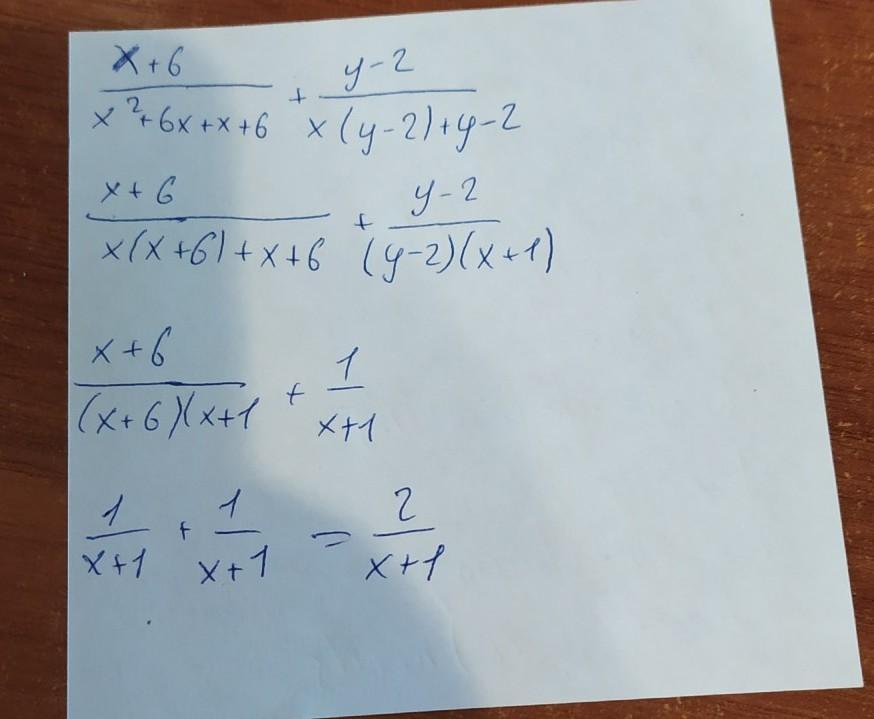 x+6 / x²+6x+x+6 + y-2 / x(y-2)+y-2
x+6 / x(x+6)+x+6 + y-2 / (y-2)(x+1)
x+6 / (x+6)(x+1 + 1 / x+1
1 / x+1 + 1 / x+1 = 2 / x+1